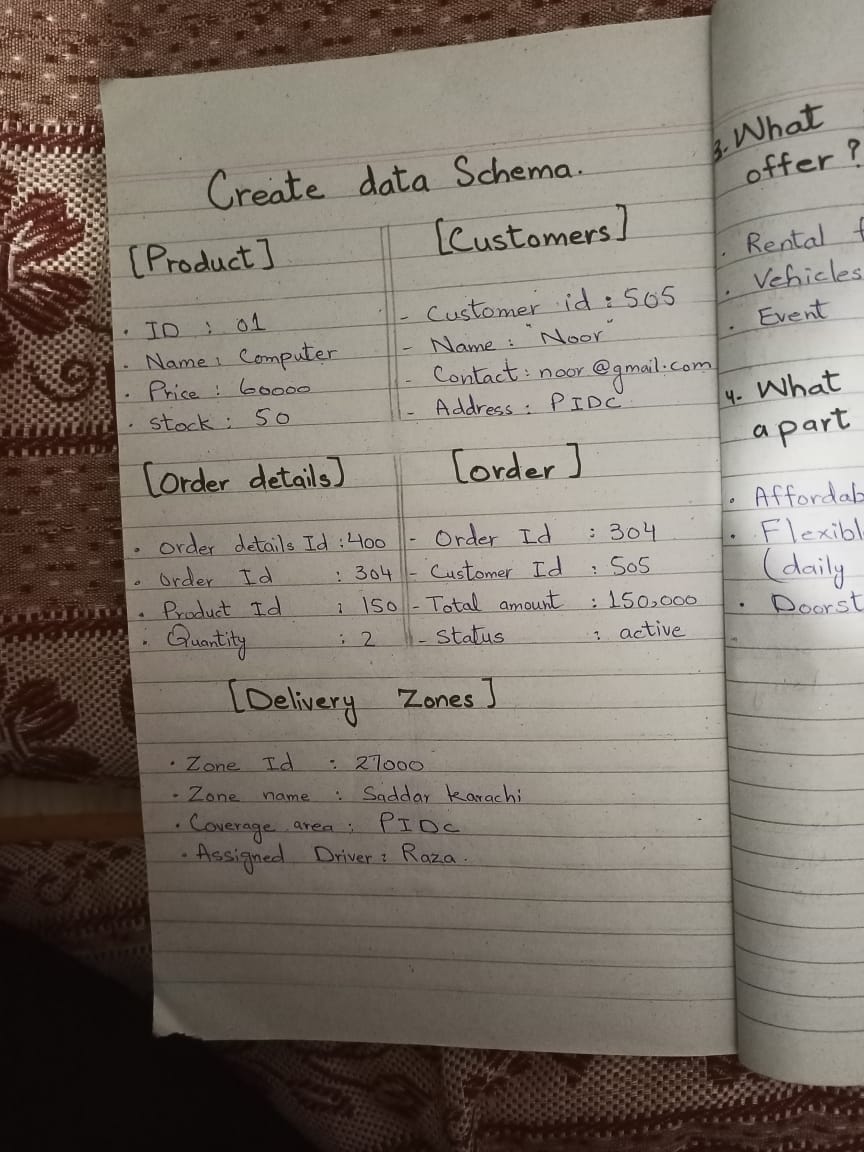 Create data Schema.
[Product]
. ID : 01
. Name: Computer
. Price : 60000
. Stock : 50
[Customers]
- Customer id : 505
- Name : "Noor"
- Contact : noor@gmail.com
- Address : PIDC
[Order details]
. Order details Id : 400
. Order Id : 304
. Product Id : 150
. Quantity : 2
[order]
- Order Id : 304
- Customer Id : 505
- Total amount : 150,000
- Status : active
[Delivery Zones]
. Zone Id : 27000
. Zone name : Saddar Karachi
. Coverage area : PIDC
. Assigned Driver : Raza.
3. What
offer ?
. Rental f
. Vehicles
. Event
4. What
apart
. Affordab
. Flexibl
(daily
. Doorst